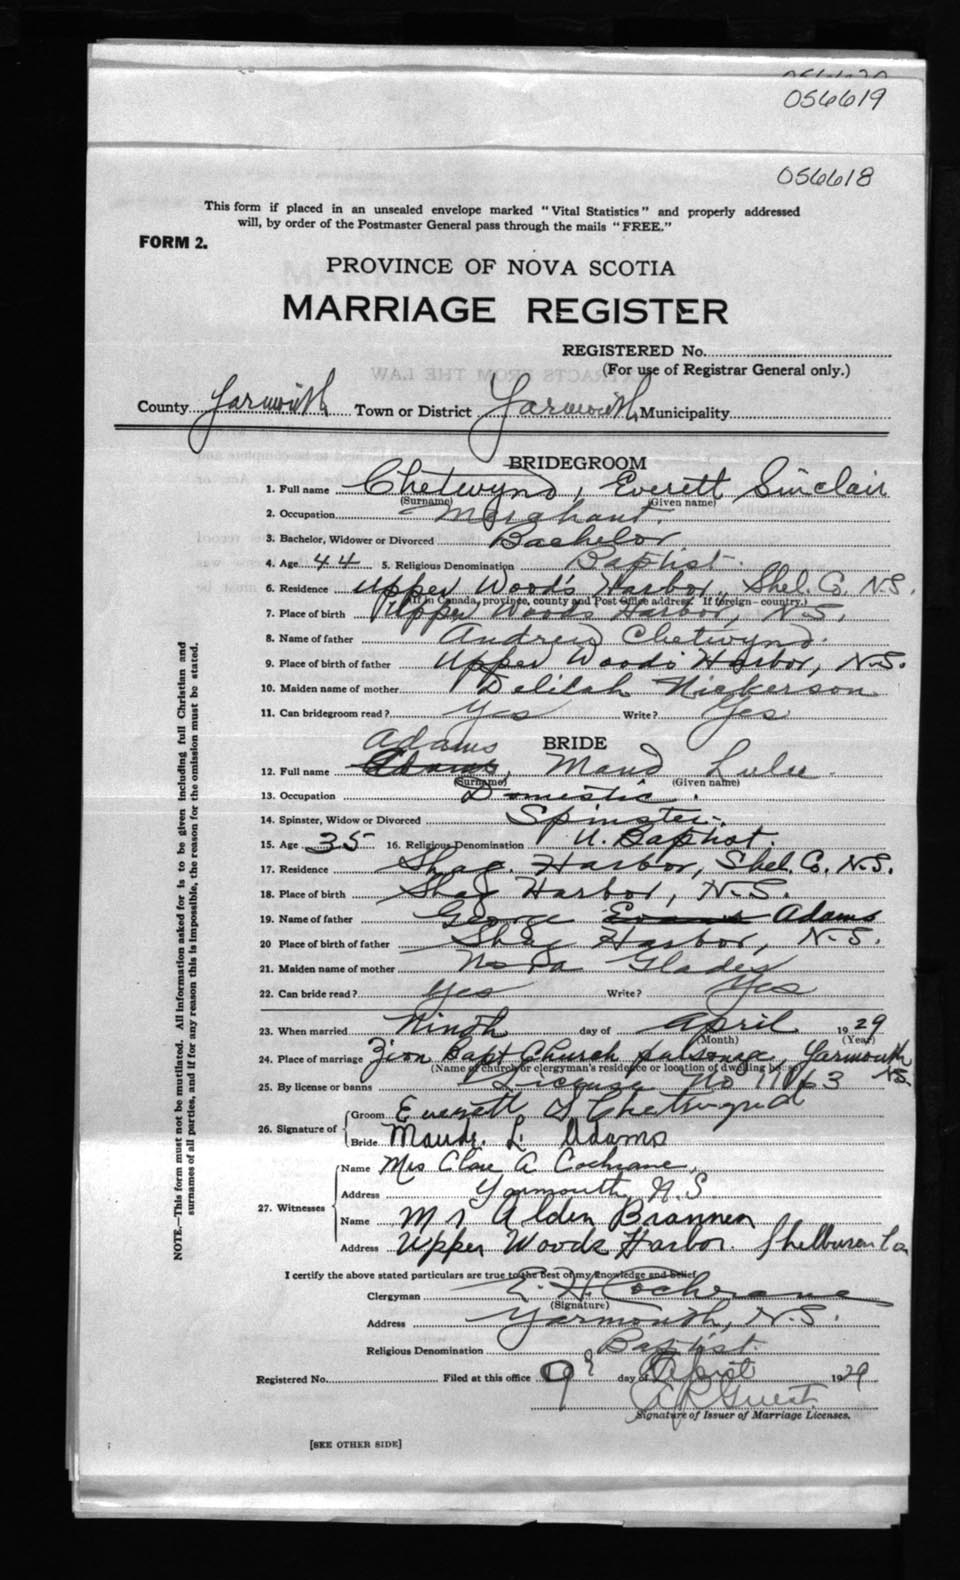 056620
056619
056618
This form if placed in an unsealed envelope marked "Vital Statistics" and properly addressed
will, by order of the Postmaster General pass through the mails "FREE."
FORM 2.
PROVINCE OF NOVA SCOTIA
MARRIAGE REGISTER
REGISTERED No.
(For use of Registrar General only.)
County Yarmouth Town or District Yarmouth Municipality
BRIDEGROOM
1. Full name Chetwynd, Everett Sinclair
(Surname) (Given name)
2. Occupation Merchant.
3. Bachelor, Widower or Divorced Bachelor
4. Age 44 5. Religious Denomination Baptist.
6. Residence Upper Wood's Harbor, Shel. Co. N.S.
(If in Canada, province, county and Post Office address. If foreign - country.)
7. Place of birth Upper Woods Harbor, N.S.
8. Name of father Andrew Chetwynd.
9. Place of birth of father Upper Woods Harbor, N.S.
10. Maiden name of mother Delilah Nickerson
11. Can bridegroom read? Yes Write? Yes
BRIDE
Adams
12. Full name Adams, Maud Lulu.
(Surname) (Given name)
13. Occupation Domestic.
14. Spinster, Widow or Divorced Spinster.
15. Age 35 16. Religious Denomination U. Baptist.
17. Residence Shag. Harbor, Shel. Co. N.S.
18. Place of birth Shag Harbor, N.S.
19. Name of father George Evans Adams
20 Place of birth of father Shag Harbor, N.S.
21. Maiden name of mother Nora Glades
22. Can bride read? Yes Write? Yes
23. When married Ninth day of April 1929
(Month) (Year)
24. Place of marriage Zion Bapt Church parsonage, Yarmouth N.S.
(Name of church or clergyman's residence or location of dwelling house)
25. By license or banns License No 11763
26. Signature of
Groom Everett S Chetwynd
Bride Maude. L. Adams
27. Witnesses
Name Mrs Clare A Cochrane,
Address Yarmouth N.S.
Name Mrs Alden Brannen
Address Upper Woods Harbor. Shelburen Co
I certify the above stated particulars are true to the best of my knowledge and belief.
Clergyman E. H. Cochrane
(Signature)
Address Yarmouth, N.S.
Religious Denomination Baptist.
Registered No. Filed at this office 9 day of April 1929
A R Guest
Signature of Issuer of Marriage Licenses.
[SEE OTHER SIDE]
NOTE.—This form must not be mutilated. All information asked for is to be given including full Christian and
surnames of all parties, and if for any reason this is impossible, the reason for the omission must be stated.